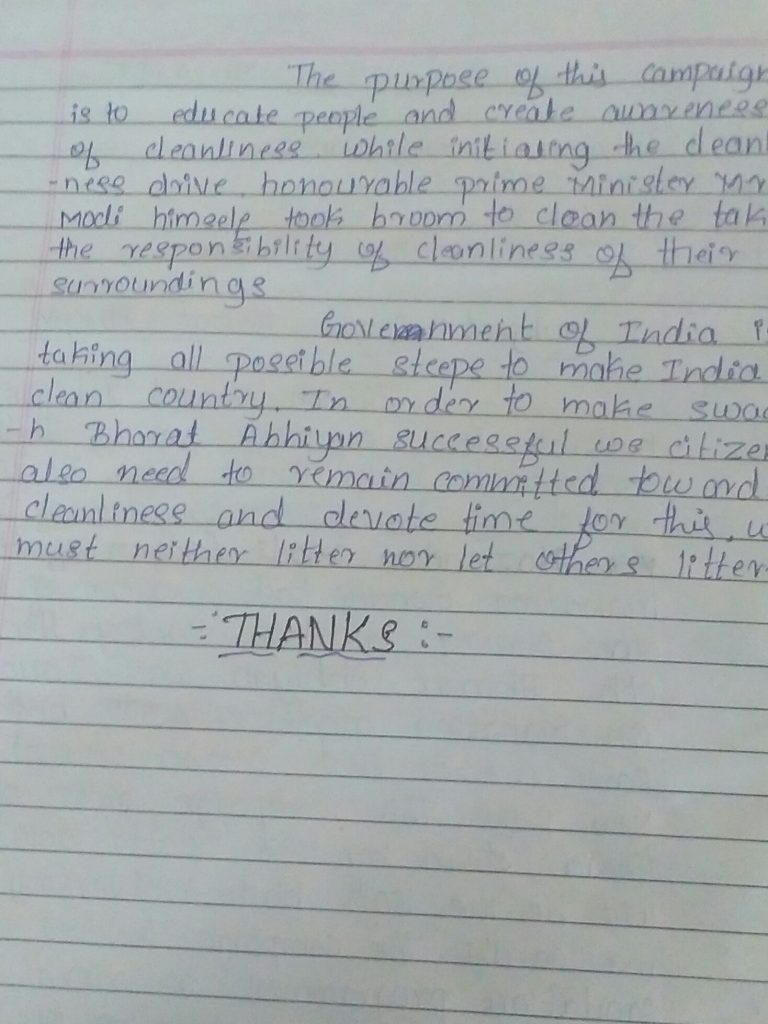 The purpose of this campaign
is to educate people and create awareness
of cleanliness. while initiating the cleanl
-ness drive, honourable prime Minister Mr
Modi himself took broom to clean the tak
the responsibility of cleanliness of their
surroundings
Government of India i
taking all possible steeps to make India
clean country. In order to make swac
-h Bharat Abhiyan successful we citizen
also need to remain committed toward
cleanliness and devote time for this, w
must neither litter nor let others litter
-:THANKS:-